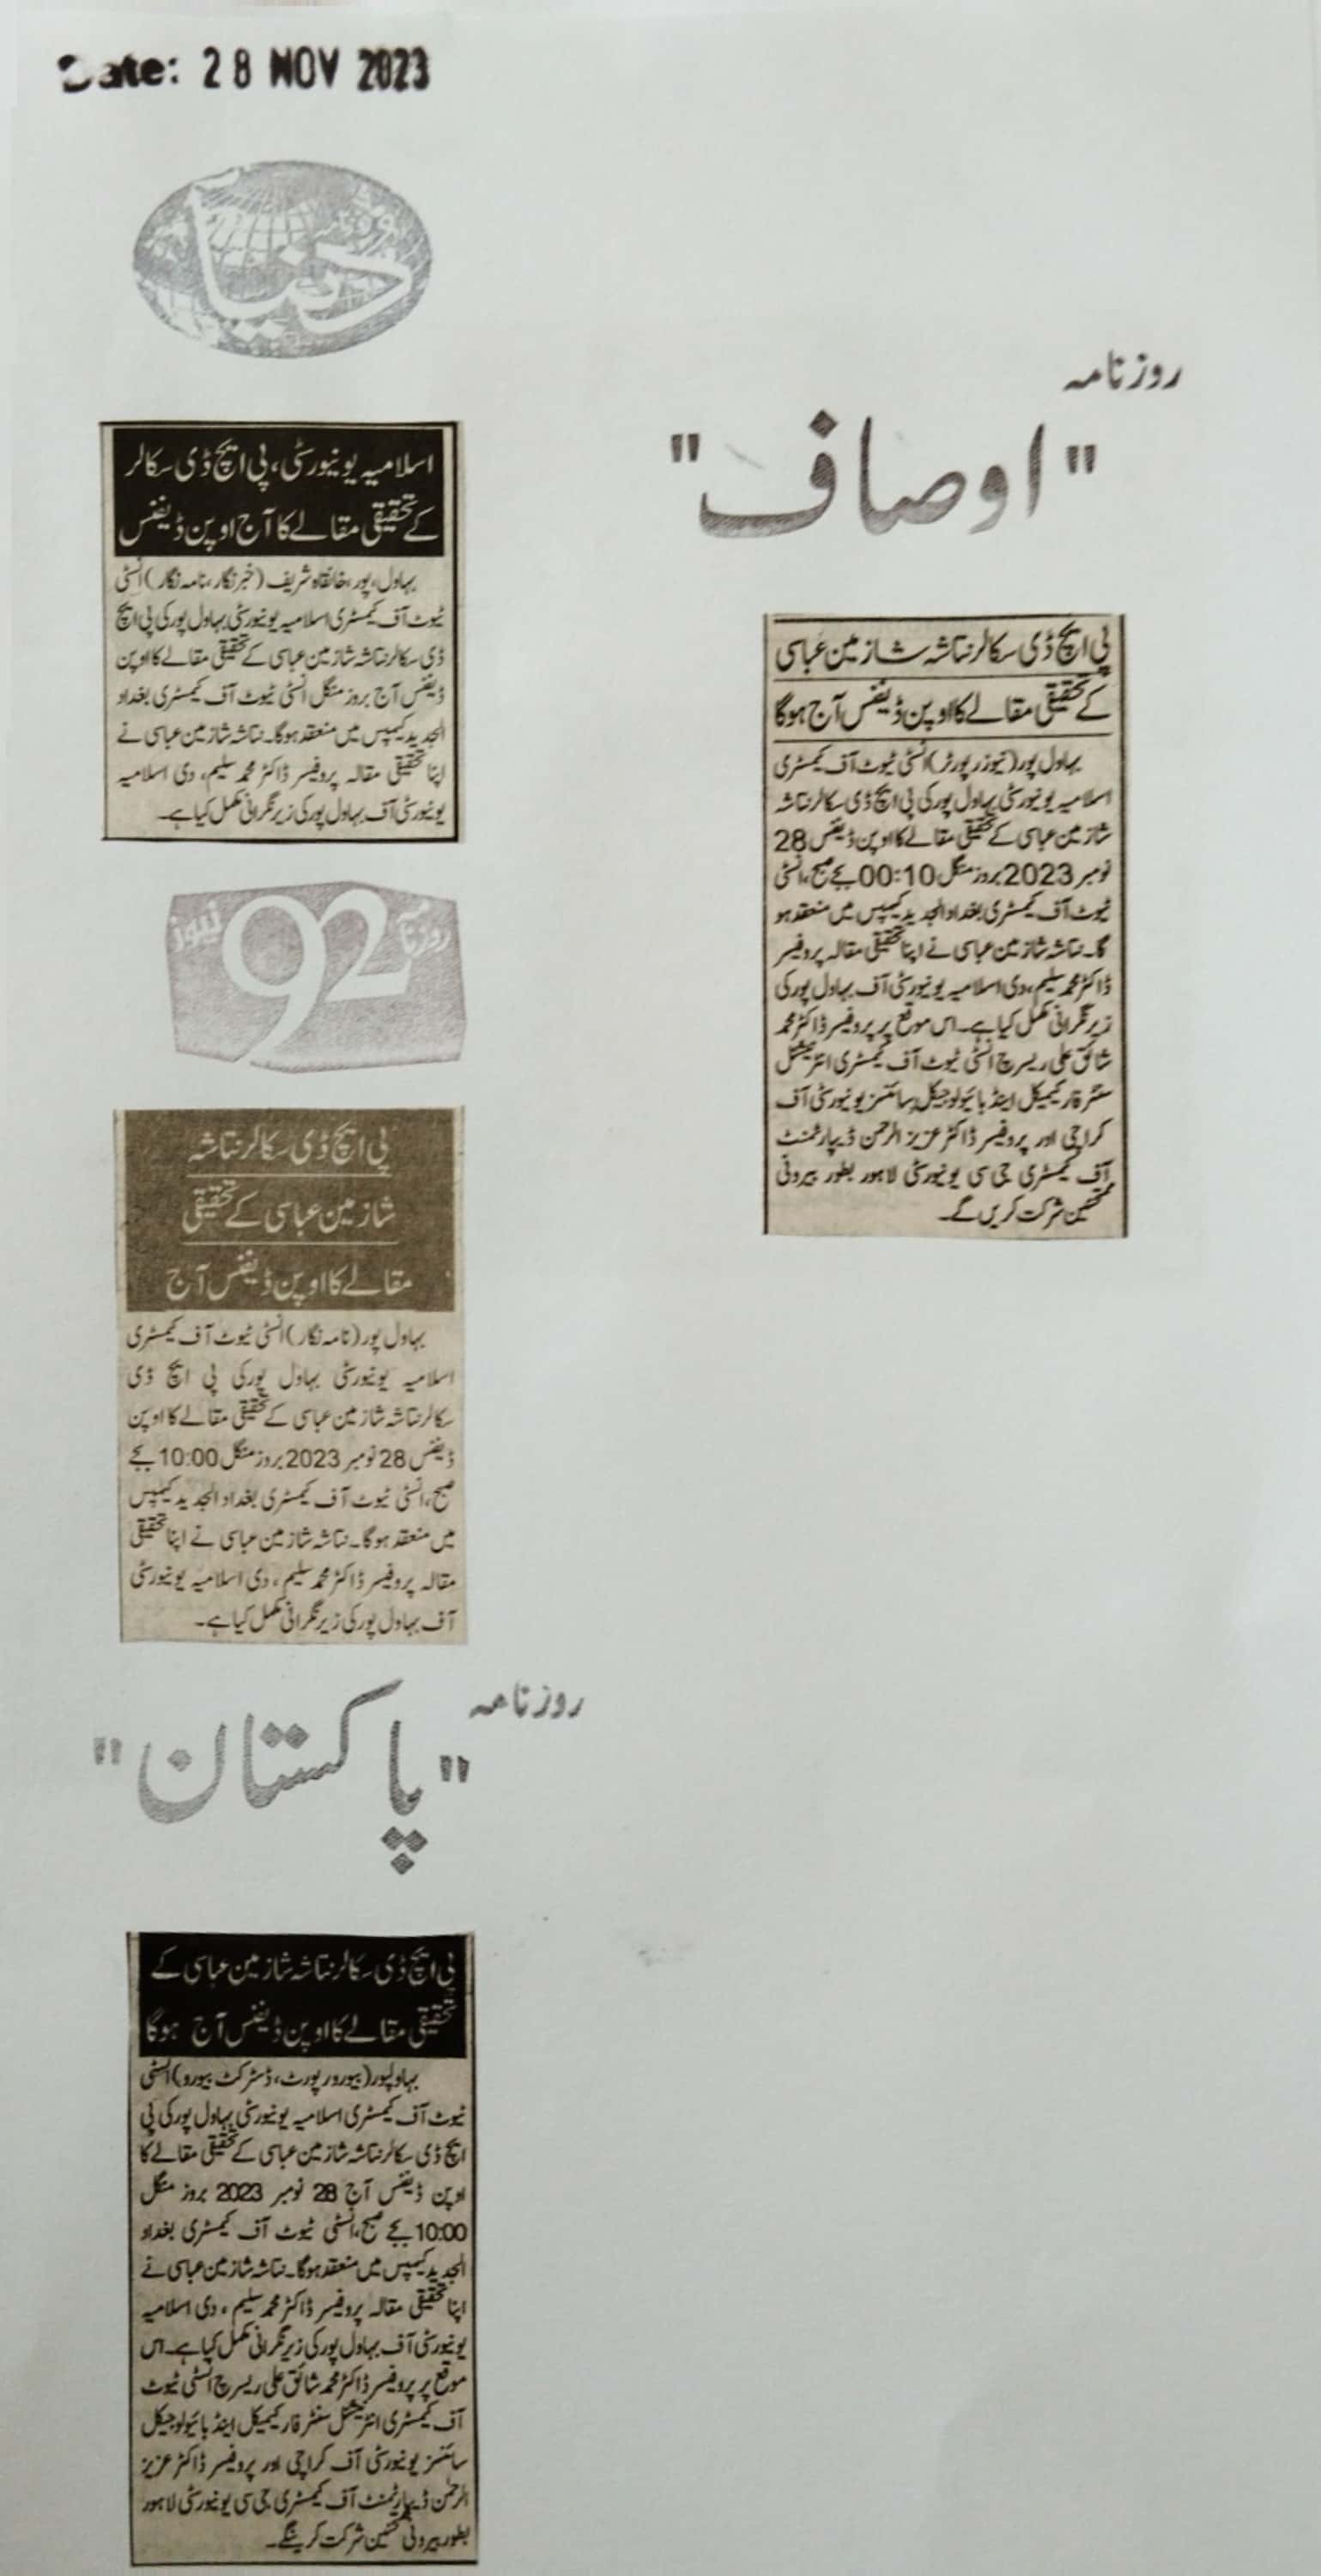 Date: 28 NOV 2023
روزنامہ
دنیا
اسلامیہ یونیورسٹی، پی ایچ ڈی سکالر
کے تحقیقی مقالے کا آج اوپن ڈیفنس
بہاول پور، خانقاہ شریف (خبر نگار، نامہ نگار) انسٹی
ٹیوٹ آف کیمسٹری اسلامیہ یونیورسٹی بہاول پور کی پی ایچ
ڈی سکالر نتاشہ شاز مین عباسی کے تحقیقی مقالے کا اوپن
ڈیفنس آج بروز منگل انسٹی ٹیوٹ آف کیمسٹری بغداد
الجدید کیمپس میں منعقد ہوگا۔ نتاشہ شاز مین عباسی نے
اپنا تحقیقی مقالہ پروفیسر ڈاکٹر محمد سلیم، دی اسلامیہ
یونیورسٹی آف بہاول پور کی زیر نگرانی مکمل کیا ہے۔
روزنامہ
92
نیوز
پی ایچ ڈی سکالر نتاشہ
شاز مین عباسی کے تحقیقی
مقالے کا اوپن ڈیفنس آج
بہاول پور (نامہ نگار) انسٹی ٹیوٹ آف کیمسٹری
اسلامیہ یونیورسٹی بہاول پور کی پی ایچ ڈی
سکالر نتاشہ شاز مین عباسی کے تحقیقی مقالے کا اوپن
ڈیفنس 28 نومبر 2023 بروز منگل 10:00 بجے
صبح، انسٹی ٹیوٹ آف کیمسٹری بغداد الجدید کیمپس
میں منعقد ہوگا۔ نتاشہ شاز مین عباسی نے اپنا تحقیقی
مقالہ پروفیسر ڈاکٹر محمد سلیم، دی اسلامیہ یونیورسٹی
آف بہاول پور کی زیر نگرانی مکمل کیا ہے۔
روزنامہ
"پاکستان"
پی ایچ ڈی سکالر نتاشہ شاز مین عباسی کے
تحقیقی مقالے کا اوپن ڈیفنس آج ہوگا
بہاولپور (بیورورپورٹ، ڈسٹرکٹ بیورو) انسٹی
ٹیوٹ آف کیمسٹری اسلامیہ یونیورسٹی بہاول پور کی پی
ایچ ڈی سکالر نتاشہ شاز مین عباسی کے تحقیقی مقالے کا
اوپن ڈیفنس آج 28 نومبر 2023 بروز منگل
10:00 بجے صبح، انسٹی ٹیوٹ آف کیمسٹری بغداد
الجدید کیمپس میں منعقد ہوگا۔ نتاشہ شاز مین عباسی نے
اپنا تحقیقی مقالہ پروفیسر ڈاکٹر محمد سلیم، دی اسلامیہ
یونیورسٹی آف بہاول پور کی زیر نگرانی مکمل کیا ہے۔ اس
موقع پر پروفیسر ڈاکٹر محمد شائق علی ریسرچ انسٹی ٹیوٹ
آف کیمسٹری انٹرنیشنل سنٹر فار کیمیکل اینڈ بائیولوجیکل
سائنسز یونیورسٹی آف کراچی اور پروفیسر ڈاکٹر عزیز
الرحمن ڈیپارٹمنٹ آف کیمسٹری جی سی یونیورسٹی لاہور
بطور بیرونی ممتحین شرکت کرینگے۔
روزنامہ
"اوصاف"
پی ایچ ڈی سکالر نتاشہ شاز مین عباسی
کے تحقیقی مقالے کا اوپن ڈیفنس آج ہوگا
بہاول پور (نیوز رپورٹر) انسٹی ٹیوٹ آف کیمسٹری
اسلامیہ یونیورسٹی بہاول پور کی پی ایچ ڈی سکالر نتاشہ
شاز مین عباسی کے تحقیقی مقالے کا اوپن ڈیفنس 28
نومبر 2023 بروز منگل 00:10 بجے صبح، انسٹی
ٹیوٹ آف کیمسٹری بغداد الجدید کیمپس میں منعقد ہو
گا۔ نتاشہ شاز مین عباسی نے اپنا تحقیقی مقالہ پروفیسر
ڈاکٹر محمد سلیم، دی اسلامیہ یونیورسٹی آف بہاول پور کی
زیر نگرانی مکمل کیا ہے۔ اس موقع پر پروفیسر ڈاکٹر محمد
شائق علی ریسرچ انسٹی ٹیوٹ آف کیمسٹری انٹرنیشنل
سنٹر فار کیمیکل اینڈ بائیولوجیکل سائنسز یونیورسٹی آف
کراچی اور پروفیسر ڈاکٹر عزیز الرحمن ڈیپارٹمنٹ
آف کیمسٹری جی سی یونیورسٹی لاہور بطور بیرونی
ممتحین شرکت کریں گے۔